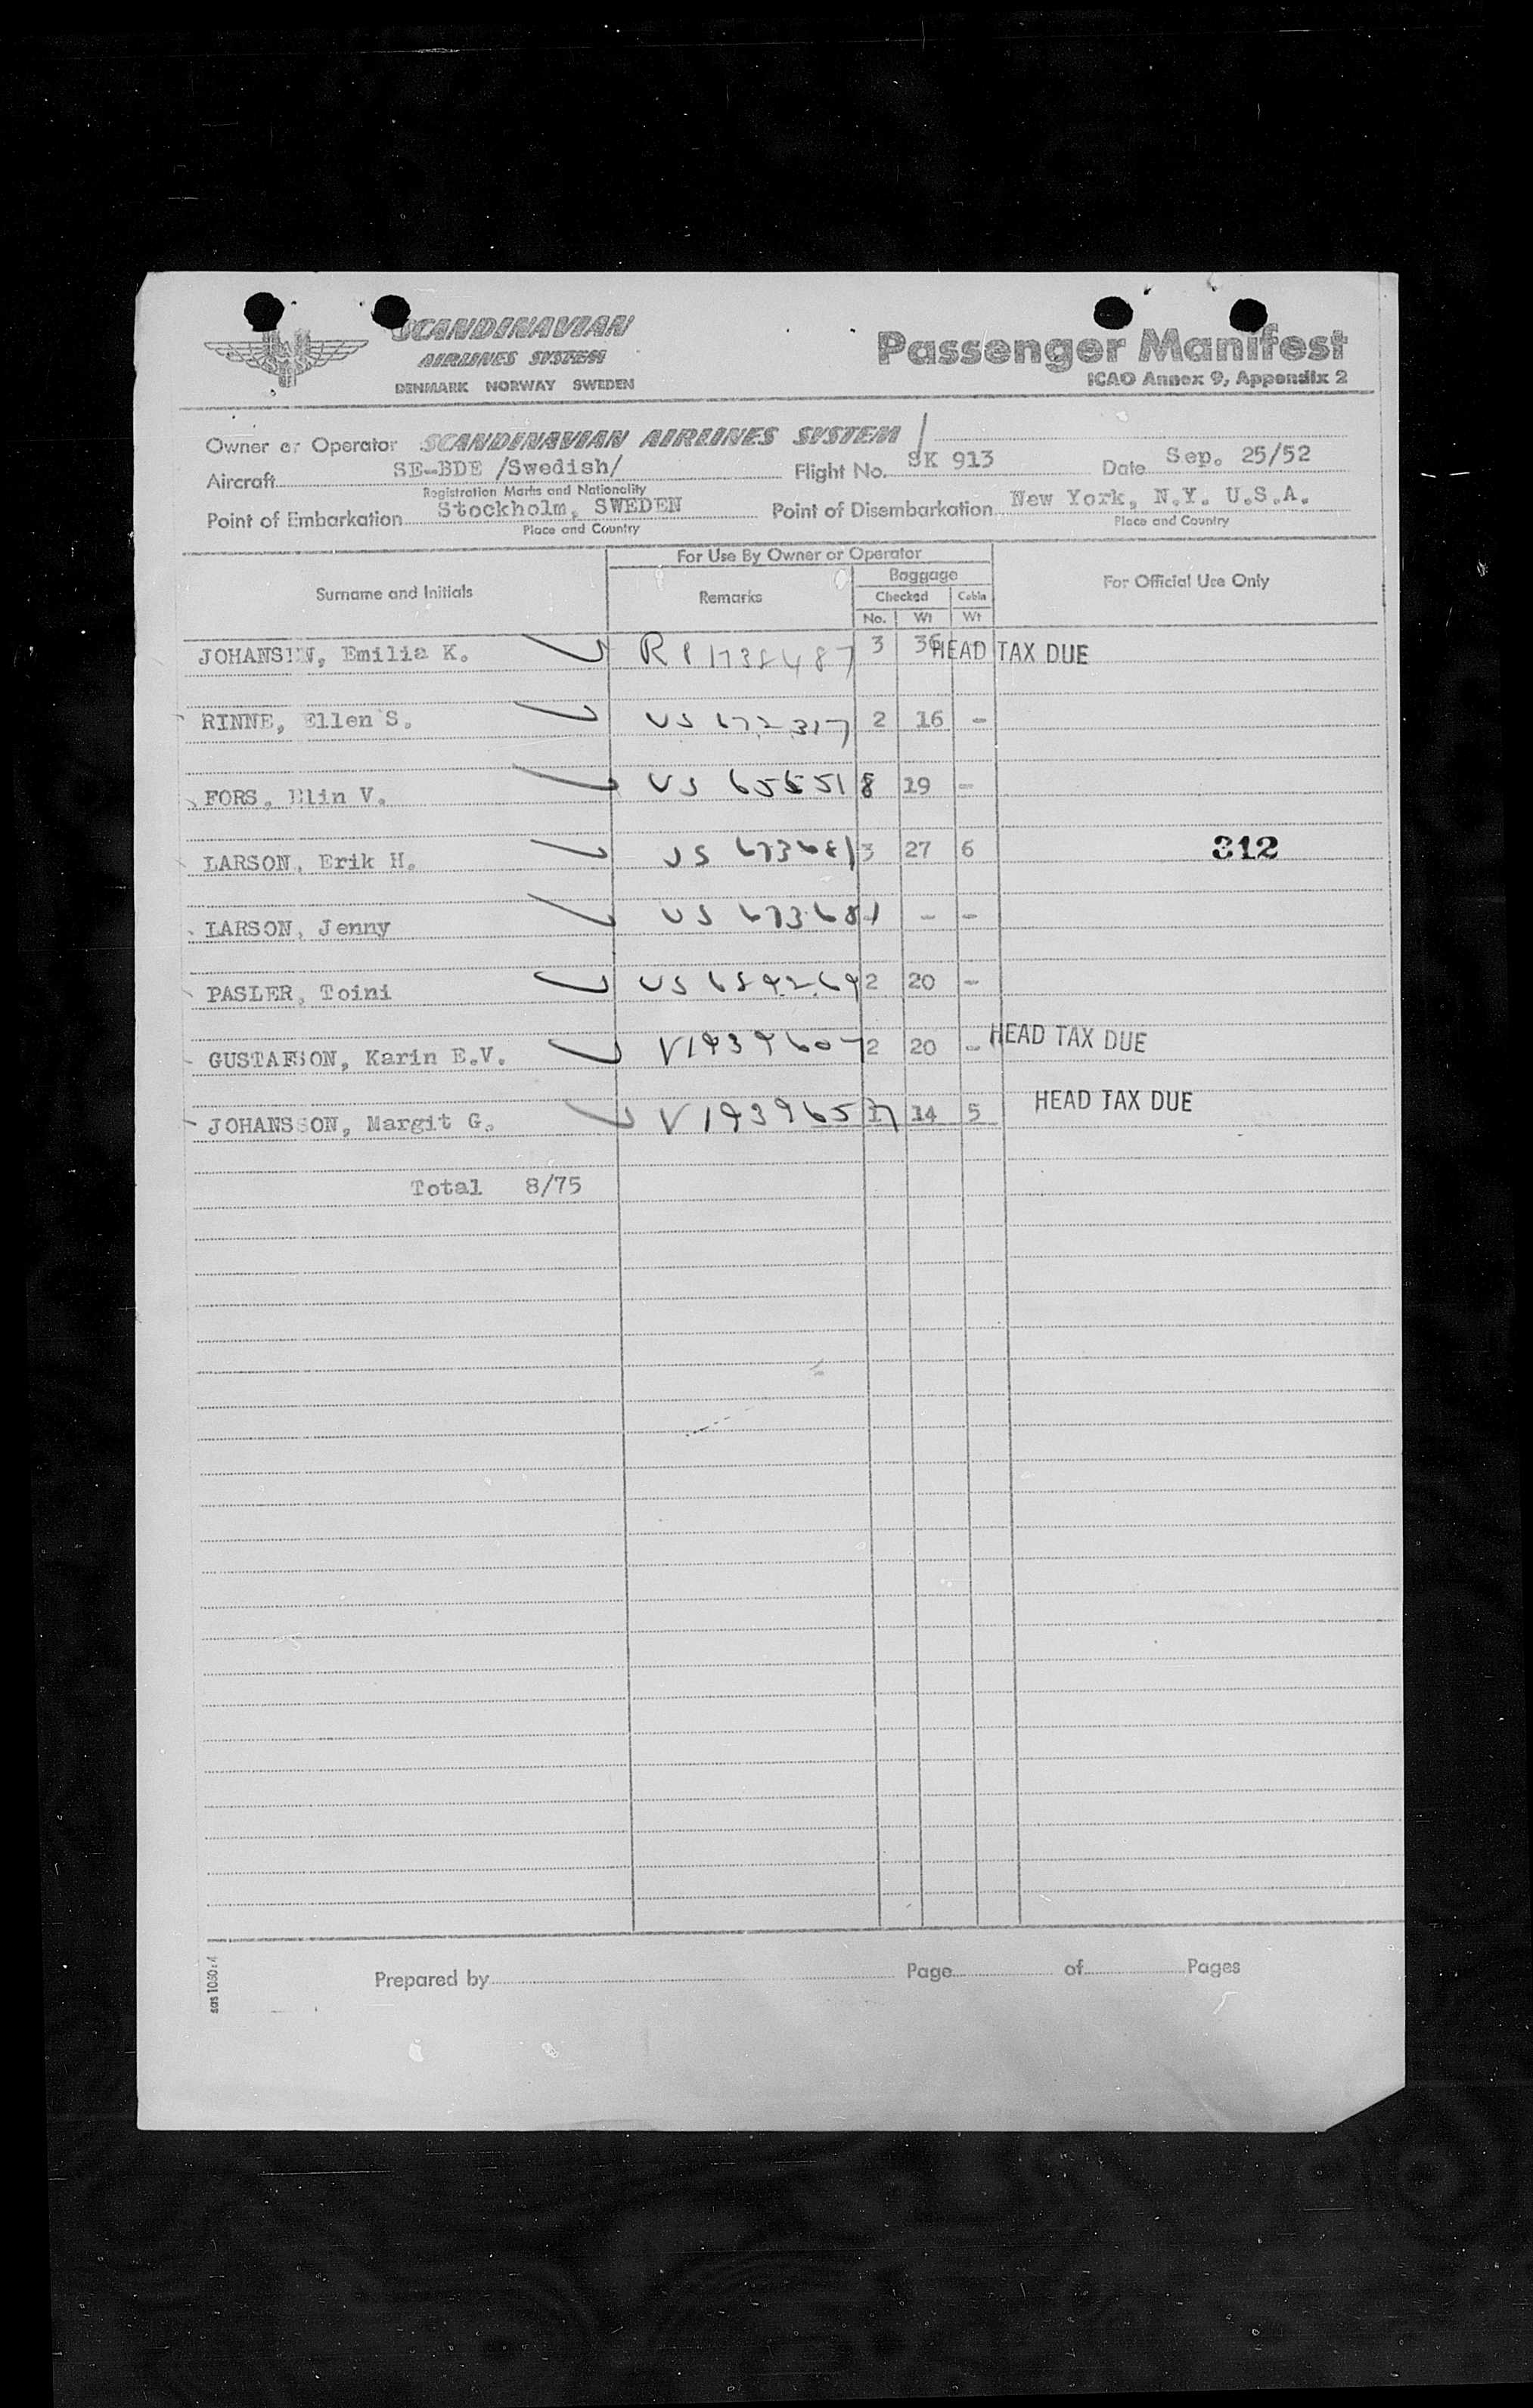 SCANDINAVIAN
AIRLINES SYSTEM
DENMARK NORWAY SWEDEN
Passenger Manifest
ICAO Annex 9, Appendix 2
Owner or Operator SCANDINAVIAN AIRLINES SYSTEM
Aircraft SE-BDE /Swedish/ Flight No. SK 913 Date Sep. 25/52
Registration Marks and Nationality
Point of Embarkation Stockholm, SWEDEN Point of Disembarkation New York, N.Y. U.S.A.
Place and Country Place and Country
For Use By Owner or Operator
Surname and Initials Remarks Baggage For Official Use Only
Checked Cabin
No. Wt Wt
JOHANSEN, Emilia K. 3 36 HEAD TAX DUE
RINNE, Ellen S. US 672317 2 16 -
FORS, Elin V. US 656551 8 19 -
LARSON, Erik H. US 673681 3 27 6 312
LARSON, Jenny US 673681 - -
PASLER, Toini 2 20 -
GUSTAFSON, Karin E.V. V1939607 2 20 - HEAD TAX DUE
JOHANSSON, Margit G. V1939657 14 5 HEAD TAX DUE
Total 8/75
Prepared by Page of Pages
sas 1030:4